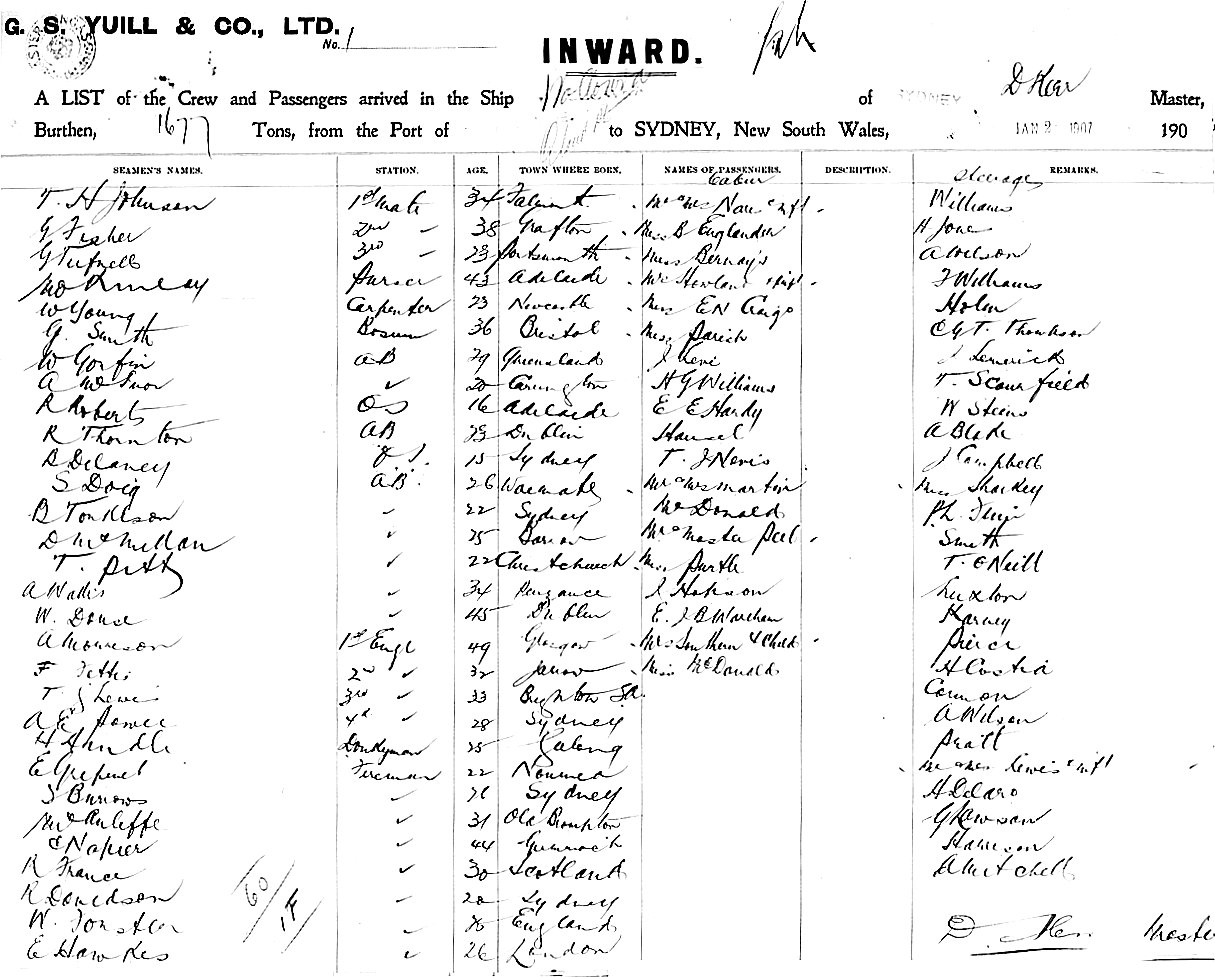 G. S. YUILL & CO., LTD.
No. 1
INWARD.
A LIST of the Crew and Passengers arrived in the Ship of SYDNEY D Kerr Master,
Burthen, 1677 Tons, from the Port of to SYDNEY, New South Wales, JAN 2 1907 190
SEAMEN'S NAMES. STATION. AGE. TOWN WHERE BORN. NAMES OF PASSENGERS. DESCRIPTION. REMARKS.
Cabin Steerage
T. H Johnson 1st Mate 34 Falmouth Mr & Mrs & inft Williams
G Fisher 2nd " 38 Grafton Miss B Englander H Jone
G Tufnell 3rd " 23 Portsmouth Miss Bernays A Wilson
Purser 43 Adelaide & inft J Williams
W Young Carpenter 23 Newcastle Miss E N Craig Holm
G. Smith Bosun 36 Bristol Miss Parish C G T. Thomson
W Gorfin AB 29 Queensland J Levi J Lemerick
A ✓ 20 H G Williams T. Scourfield
R Roberts OS 16 Adelaide E E Hardy W Steins
R Thornton AB 23 Dublin Hansel A Blake
R Delaney 15 Sydney T. J Nevis J Campbell
S Doig AB 26 Waimate Mr & Mrs Martin Miss Sharkey
B Tonkison ✓ 22 Sydney McDonald
D McMillan ✓ 25 Barrow Mr & Master Peel Smith
T. Pitt ✓ 22 Christchurch Miss Purtle T. O'Neill
A Wallis ✓ 34 Penzance J Hobson Luxton
W. Douse ✓ 45 Dublin E. J B Wareham Karney
A Morrison 1st Engr 49 Glasgow Mrs Southern & Child Pierce
F 2nd ✓ 32 Jarrow Miss McDonald H Costa
T. J Lewis 3rd ✓ 33 Brighton SA Connon
A E Power 4th ✓ 28 Sydney A Wilson
H Donkeyman 25 Geelong Pratt
E Fireman 22 Noumea Mr & Mrs Lewis & inft
S Burrows ✓ 21 Sydney
McAuliffe ✓ 31 Old Brompton G Lawson
C Napier ✓ 44 Greenock Harrison
R France ✓ 30 Scotland A Mitchell
R Donaldson ✓ 20 Sydney
W. ✓ England
E Hawkes ✓ 26 London
60/14
D. Kerr Master